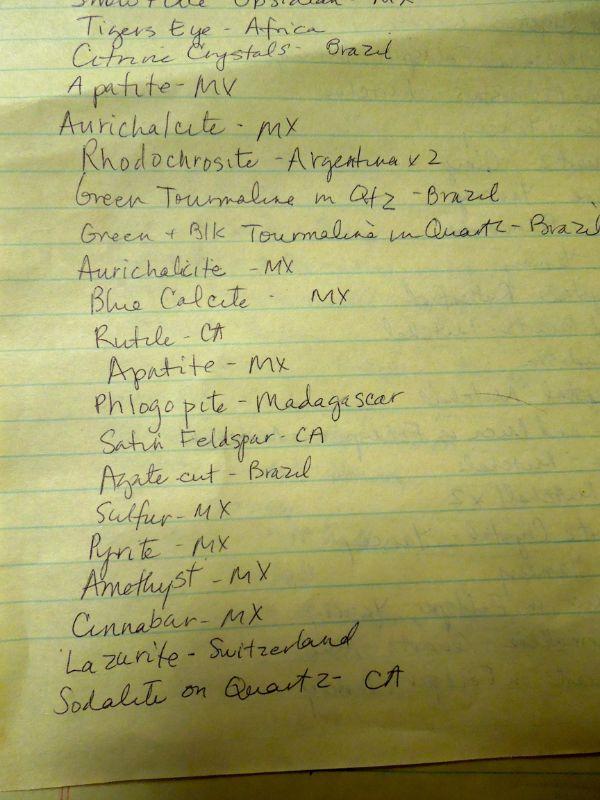 Snowflake Obsidian - MX
Tigers Eye - Africa
Citrine Crystals - Brazil
Apatite - MX
Aurichalcite - MX
Rhodochrosite - Argentina x 2
Green Tourmaline in Qtz - Brazil
Green + Blk Tourmaline in Quartz - Brazil
Aurichalcite - MX
Blue Calcite - MX
Rutile - CA
Apatite - MX
Phlogopite - Madagascar
Satin Feldspar - CA
Agate cut - Brazil
Sulfur - MX
Pyrite - MX
Amethyst - MX
Cinnabar - MX
Lazurite - Switzerland
Sodalite on Quartz - CA